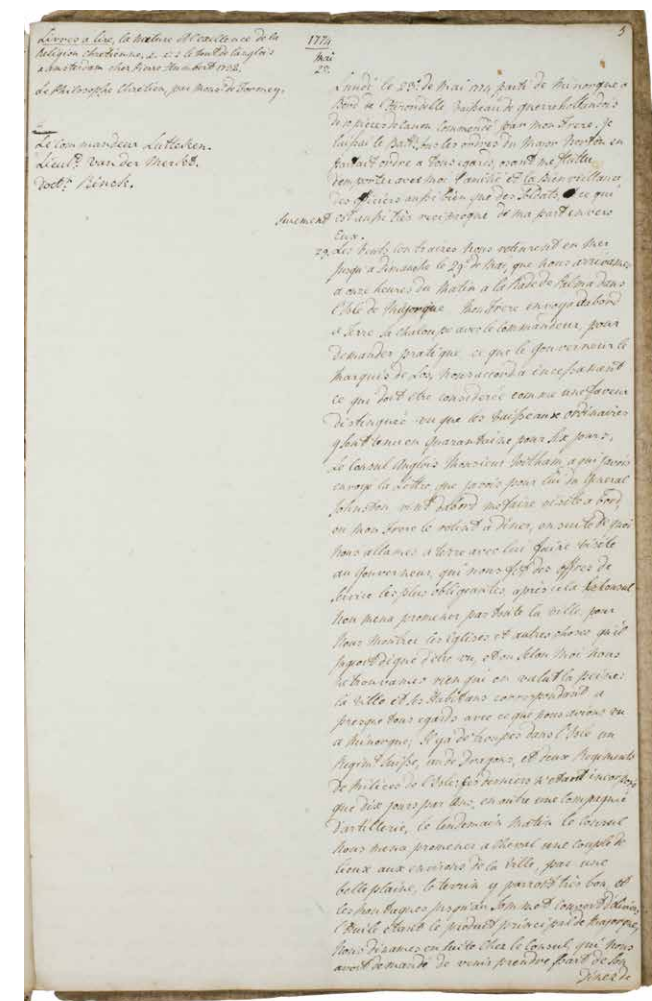 5
Livres a lire, la nature et l'excellence de la
Religion chretienne, 2. le tout de l'anglois
a Amsterdam chez Pierre Humbert 1722.
Le Philosophe Chretien, par Mons: de Formey.
Le Commandeur Lutteken.
Lieut: van der Merkt.
Doct: Binck.
1774
Mai
23.
Lundi le 23: de Mai 1774 parti de Minorque a
Bord de Vaisseau de guerre hollandois
de pieces de canon commendé par mon frere. je
laissai le Batt: sous les ordres du Major Norton en
parfait ordre a tous egards, osant me flatter
d'emporter avec moi l'amitié et la bienveillance
des officiers aussi bien que des soldats, ce qui
surement est aussi très reciproque de ma part envers
eux.
29. Les vents contraires nous retinrent en mer
jusqu'a dimanche le 29: de Mai, que nous arrivames
a onze heures du matin a la Rade de Palma dans
l'Isle de Majorque. Mon frere envoya d'abord
a Terre la chaloupe avec le Commandeur, pour
demander pratique, ce que le Gouverneur le
Marquis de nous accorda incessamment
ce qui doit être considerée comme une faveur
distinguée vu que les vaisseaux ordinaires
y sont tenu en Quarantaine pour six jours.
Le Consul Anglois Monsieur a qui j'avois
envoyé la Lettre, que j'avois pour lui du General
Johnston vint d'abord me faire visite a bord,
ou mon frere le retint a diner, ensuite de quoi
nous allames a terre avec lui faire visite
au Gouverneur, qui nous fit des offres de
service les plus obligeantes, après cela le Consul
nous mena promener par toute la ville pour
nous montrer les Eglises et autres choses qu'il
digne d'être vu, et ou selon moi nous
ne trouvames rien qui en valut la peine:
la ville et ses Habitans correspondant a
presque tous egards avec ce que nous avions vu
a Minorque; Il y a de troupes dans l'Isle un
Regimt: Suisse, un de Dragons, et deux Regiments
de Milices de l'Isle, ces derniers n'etant
que dix jours par ans, en outre une Compagnie
d'artillerie, le lendemain matin le Consul
nous mena promener a cheval une couple de
lieux aux environs de la ville, par une
belle plaine, le terrain y parroit très bon, et
les montagnes jusqu'au sommet couvert d'oliviers,
l'Huile etant le produit principal de Majorque,
nous dinames ensuite chez le Consul, qui nous
avoit demandé de venir prendre part de son
Diner de